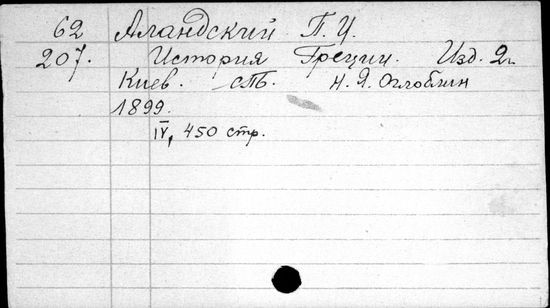 62 Аландский П. И.
207. История Греции. Изд. 2-
Киев. Н. Я. Оглоблин
1899.
IV, 450 стр.